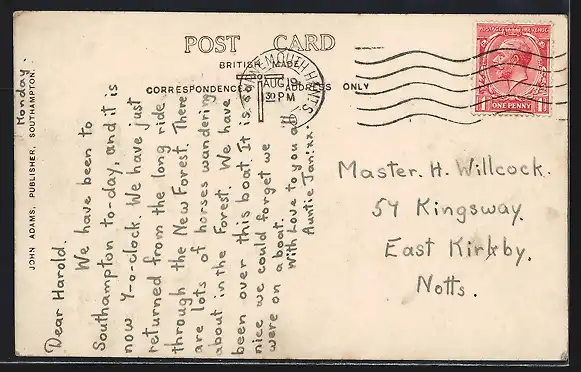 POST CARD
BRITISH MADE
CORRESPONDENCE
ADDRESS ONLY
BOURNEMOUTH HANTS.
AUG 19
30 PM
POSTAGE REVENUE
ONE PENNY
JOHN ADAMS, PUBLISHER, SOUTHAMPTON.
Monday.
Dear Harold.
We have been to
Southampton to-day, and it is
now 7-o-clock. We have just
returned from the long ride
through the New Forest. There
are lots of horses wandering
about in the Forest. We have
been over this boat It is so
nice we could forget we
were on a boat.
With Love to you all
Auntie Jan:xx.
Master. H. Willcock.
54 Kingsway.
East Kirkby.
Notts.